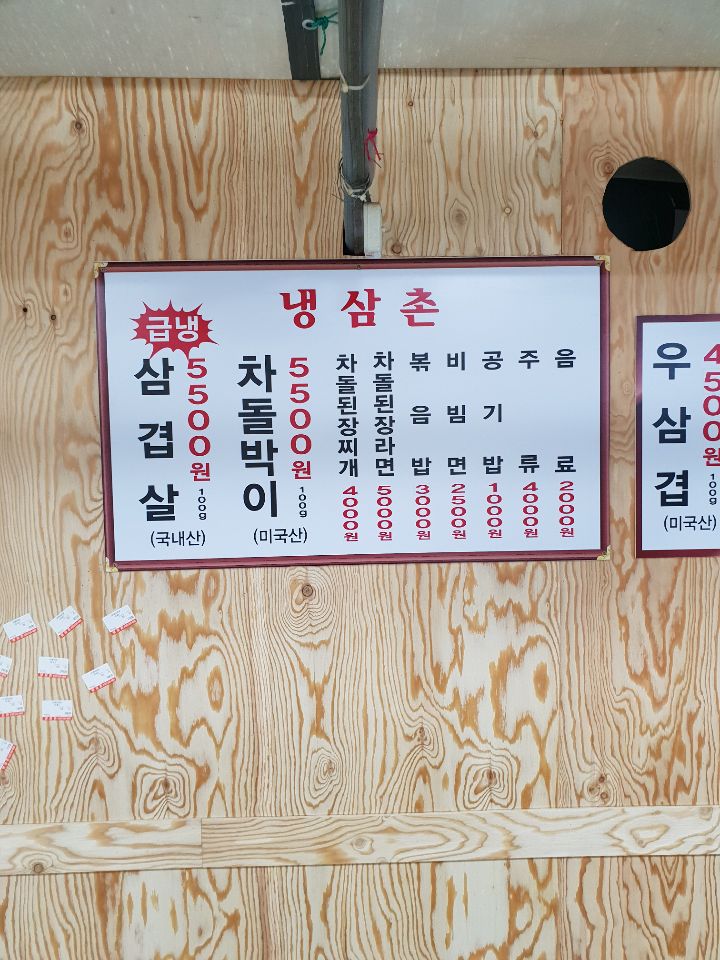 냉삼촌
급냉
삼겹살
5500원
100g
(국내산)
차돌박이
5500원
100g
(미국산)
차돌된장찌개
4000원
차돌된장라면
5000원
볶음밥
3000원
비빔면
2500원
공기밥
1000원
주류
4000원
음료
2000원
우삼겹
4500원
100g
(미국산)